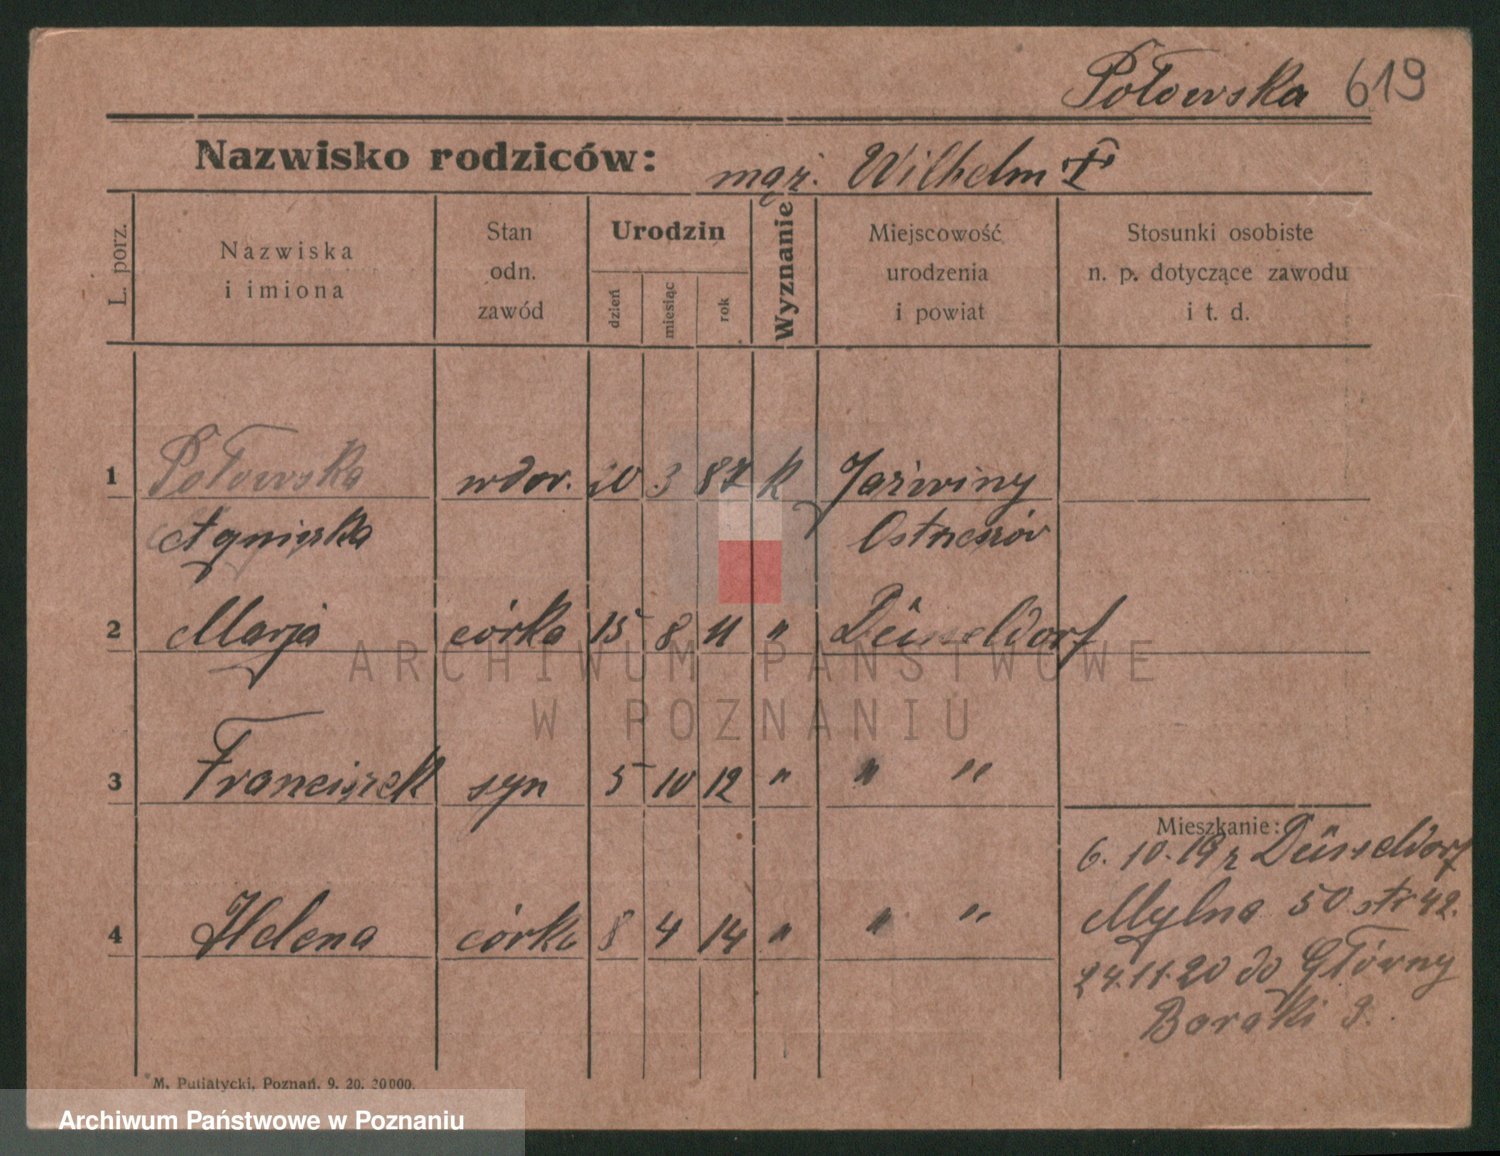 Połowska 619
Nazwisko rodziców: mąż. Wilhelm
L. porz.
Nazwiska
i imiona
Stan
odn.
zawód
Urodzin
dzień
miesiąc
rok
Wyznanie
Miejscowość
urodzenia
i powiat
Stosunki osobiste
n. p. dotyczące zawodu
i t. d.
1 Połowska wdow. 20 3 87 k Jaźwiny
Agnieszka Ostrzeszów
2 Marja córka 15 8 11 " Düsseldorf
3 Franciszek syn 5 10 12 " " "
4 Helena córka 8 4 14 " " "
Mieszkanie:
6. 10. 19 z Düsseldorf
Mylna 50 str 42.
24.11.20 do Główny
Baraki 9.
M. Putiatycki, Poznań. 9. 20. 20000.
ARCHIWUM PAŃSTWOWE
W POZNANIU
Archiwum Państwowe w Poznaniu